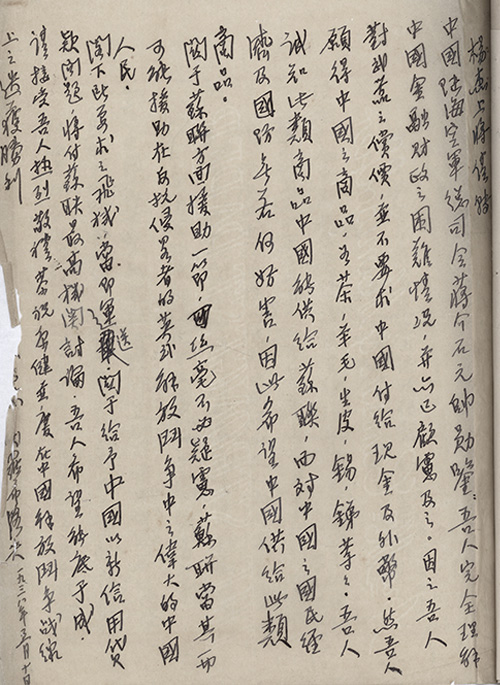 楊杰上將謹轉
中國陸海空軍總司令蔣介石元帥勛鑒：吾人完全理解
中國金融財政之困難情況，亦已顧慮及之。因之吾人
對武器之償價，並不要求中國付給現金及外幣。然吾人
願得中國之商品，如茶，羊毛，生皮，錫，銻等等。吾人
深知此類商品中國能供給蘇聯，而對中國之國民經
濟及國防無若何妨害，因此希望中國供給此類
商品。
關于蘇聯方面援助一節，絲毫不必疑慮，蘇聯當其所
可能援助在反抗侵畧者的英勇解放鬥爭中之偉大的中國
人民。
閣下所要求之飛機，當即運送。關于給予中國以新信用貸
款問題，將付蘇聯最高機關討論，吾人希望能底于成。
謹接受吾人熱烈敬禮，恭祝康健並慶在中國解放鬥爭戰線
上之迭獲勝利
一九三八年五月十日